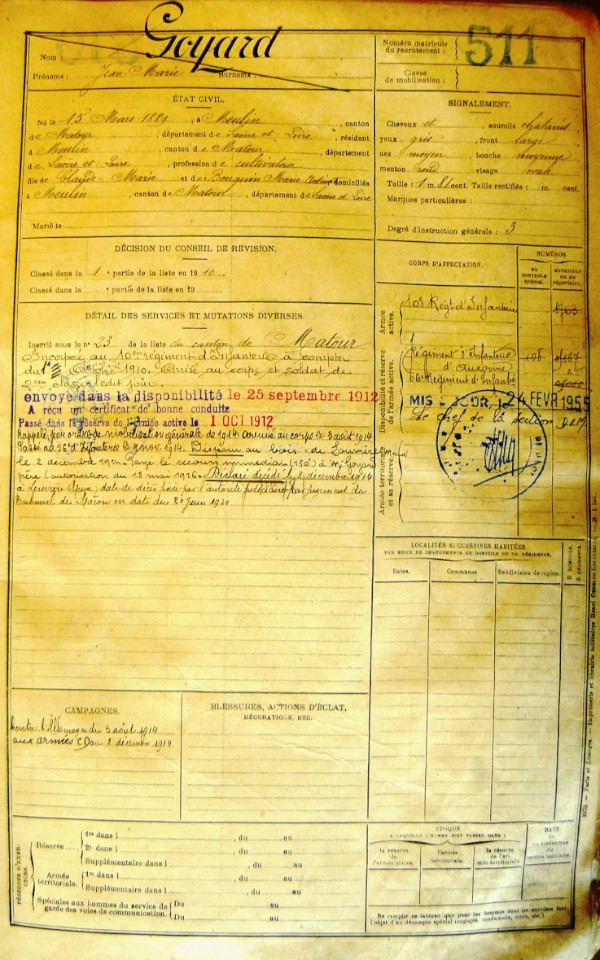 Goyard
Nom :
Prénoms : Jean Marie Surnoms :
Numéro matricule du recrutement : 511
Classe de mobilisation :
ÉTAT CIVIL.
Né le 15 Mars 188 , à Meulin , canton
de Matour , département de Saone et Loire , résidant
à Meulin , canton de Matour , département
de Saone et Loire , profession de cultivateur
fils de Claude Marie et de Bourguin Marie domiciliés
à Meulin , canton de Matour , département de Saone et Loire
Marié le
SIGNALEMENT.
Cheveux et , sourcils chatains
yeux gris , front large
nez moyen , bouche moyenne
menton rond visage ovale
Taille : 1 m. 61 cent. Taille rectifiée : m. cent.
Marques particulières :
Degré d'instruction générale : 3
DÉCISION DU CONSEIL DE RÉVISION.
Classé dans la 1 e partie de la liste en 1910.
Classé dans la e partie de la liste en 19
DÉTAIL DES SERVICES ET MUTATIONS DIVERSES.
Inscrit sous le n° 23 de la liste du canton de Matour
Incorporé au 10e régiment d'Infanterie à compter
du 1910. Arrivé au corps et soldat de
2eme classe ledit jour.
envoyé dans la disponibilité le 25 septembre 1912
A reçu un certificat de bonne conduite
Passé dans la réserve de l'armée active le 1 OCT 1912
Rappelé par ordre de mobilisation générale de 1914 arrivé au corps le 3 août 1914
Passé au 56e d'Infanterie le 1914. Disparu au bois de
le 2 décembre 1914 Payé le secours immédiat (150f) à Mr Goyard
père l'autorisation du 18 mai 1916. Déclaré décédé le 2 décembre 1914
à (Meuse) date de décès fixée par l'autorité judiciaire par jugement du
Tribunal de Mâcon en date du juin 1920
CORPS D'AFFECTATION.
NUMÉROS
AU CONTRÔLE SPÉCIAL.
MATRICULE OU AU RÉPERTOIRE.
Armée active.
10e Regt d'Infanterie
Disponibilité et réserve de l'armée active.
Régiment d'Infanterie
d'Auxonne
56e Régiment d'Infanterie
Armée territoriale et sa réserve.
MIS A JOUR, LE 24 FEVR 1955
Le chef de la section
LOCALITÉS SUCCESSIVES HABITÉES
PAR SUITE DE CHANGEMENTS DE DOMICILE OU DE RÉSIDENCE.
Dates. Communes. Subdivision de région. D. DOMICILE. R. RÉSIDENCE.
CAMPAGNES.
Contre l'Allemagne du 3 août 1914
aux armées au 2 décembre 1914
BLESSURES, ACTIONS D'ÉCLAT,
DÉCORATIONS, ETC.
PÉRIODES D'EXERCICES.
Réserve
1re dans l , du au
2e dans l , du au
Supplémentaire dans l , du au
Armée territoriale.
1re dans l , du au
Supplémentaire dans l , du au
Spéciales aux hommes du service de garde des voies de communication.
Du au
Du au
ÉPOQUE
À LAQUELLE L'HOMME DOIT PASSER DANS :
la réserve de l'armée active.
l'armée territoriale.
la réserve de l'armée territoriale.
DATE
DE LA LIBÉRATION DU SERVICE MILITAIRE.